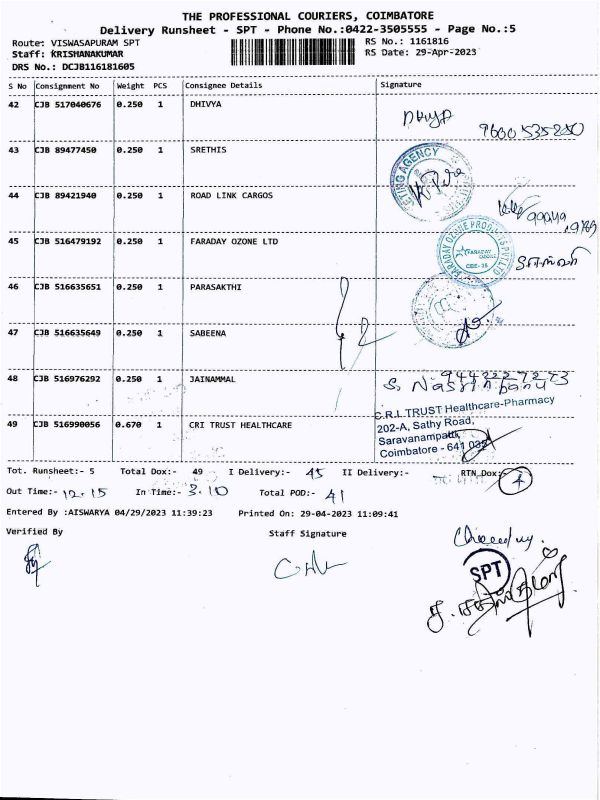 THE PROFESSIONAL COURIERS, COIMBATORE
Delivery Runsheet - SPT - Phone No.:0422-3505555 - Page No.:5
Route: VISWASAPURAM SPT
RS No.: 1161816
Staff: KRISHANAKUMAR
RS Date: 29-Apr-2023
DRS No.: DCJB116181605
S No Consignment No Weight PCS Consignee Details Signature
42 CJB 517040676 0.250 1 DHIVYA
9600535250
43 CJB 89477450 0.250 1 SRETHIS
44 CJB 89421940 0.250 1 ROAD LINK CARGOS
45 CJB 516479192 0.250 1 FARADAY OZONE LTD
FARADAY OZONE PRODUCTS PVT LTD
FARADAY OZONE
CBE-35
46 CJB 516635651 0.250 1 PARASAKTHI
47 CJB 516635649 0.250 1 SABEENA
48 CJB 516976292 0.250 1 JAINAMMAL
9442227273
S. Nasrin banu
49 CJB 516990056 0.670 1 CRI TRUST HEALTHCARE
C.R.I. TRUST Healthcare-Pharmacy
202-A, Sathy Road,
Saravanampatti,
Coimbatore - 641 035
Tot. Runsheet:- 5 Total Dox:- 49 I Delivery:- 45 II Delivery:- RTN Dox:- 4
Out Time:- 12.15 In Time:- 3.10 Total POD:- 41
Entered By :AISWARYA 04/29/2023 11:39:23 Printed On: 29-04-2023 11:09:41
Verified By Staff Signature
SPT